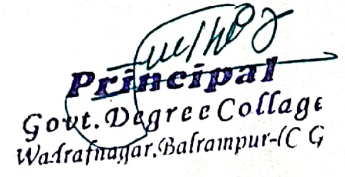 Principal
Govt. Degree Collage
Wadrafnagar, Balrampur-(C G